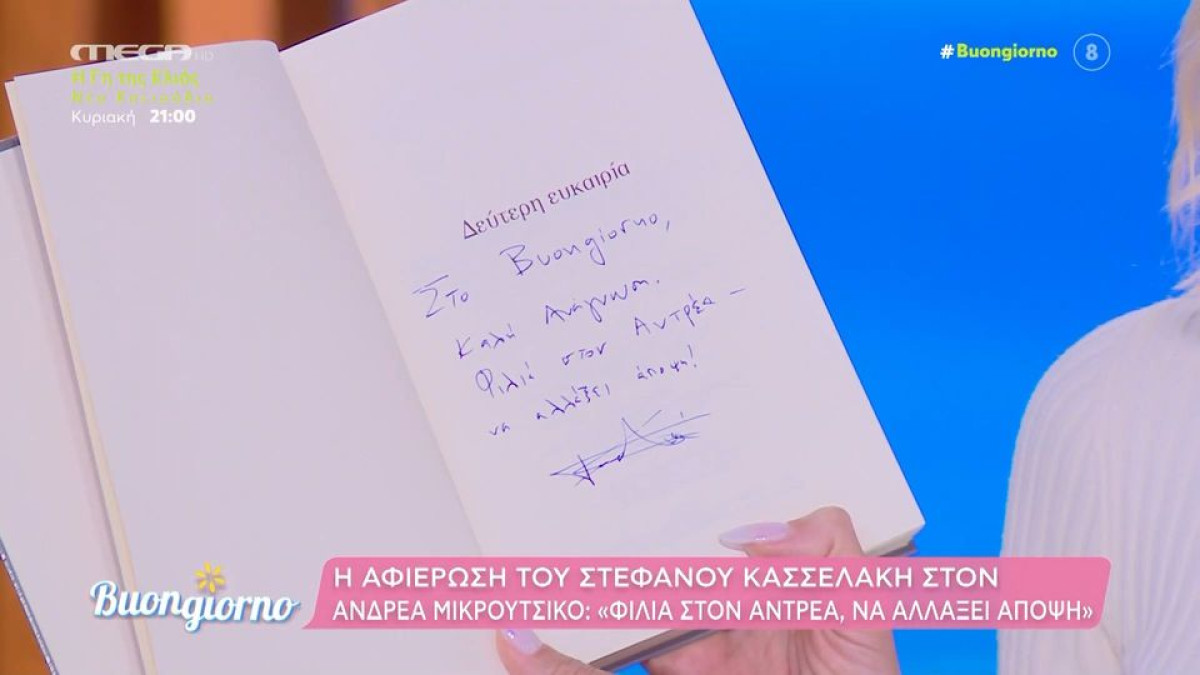 MEGA HD
Η Γη της Ελιάς
Νέο Επεισόδιο
Κυριακή 21:00
#Buongiorno 8
Δεύτερη ευκαιρία
Στο Buongiorno,
Καλή Ανάγνωση.
Φιλιά στον Αντρέα –
να αλλάξει άποψη!
Buongiorno
Η ΑΦΙΕΡΩΣΗ ΤΟΥ ΣΤΕΦΑΝΟΥ ΚΑΣΣΕΛΑΚΗ ΣΤΟΝ
ΑΝΔΡΕΑ ΜΙΚΡΟΥΤΣΙΚΟ: «ΦΙΛΙΑ ΣΤΟΝ ΑΝΤΡΕΑ, ΝΑ ΑΛΛΑΞΕΙ ΑΠΟΨΗ»